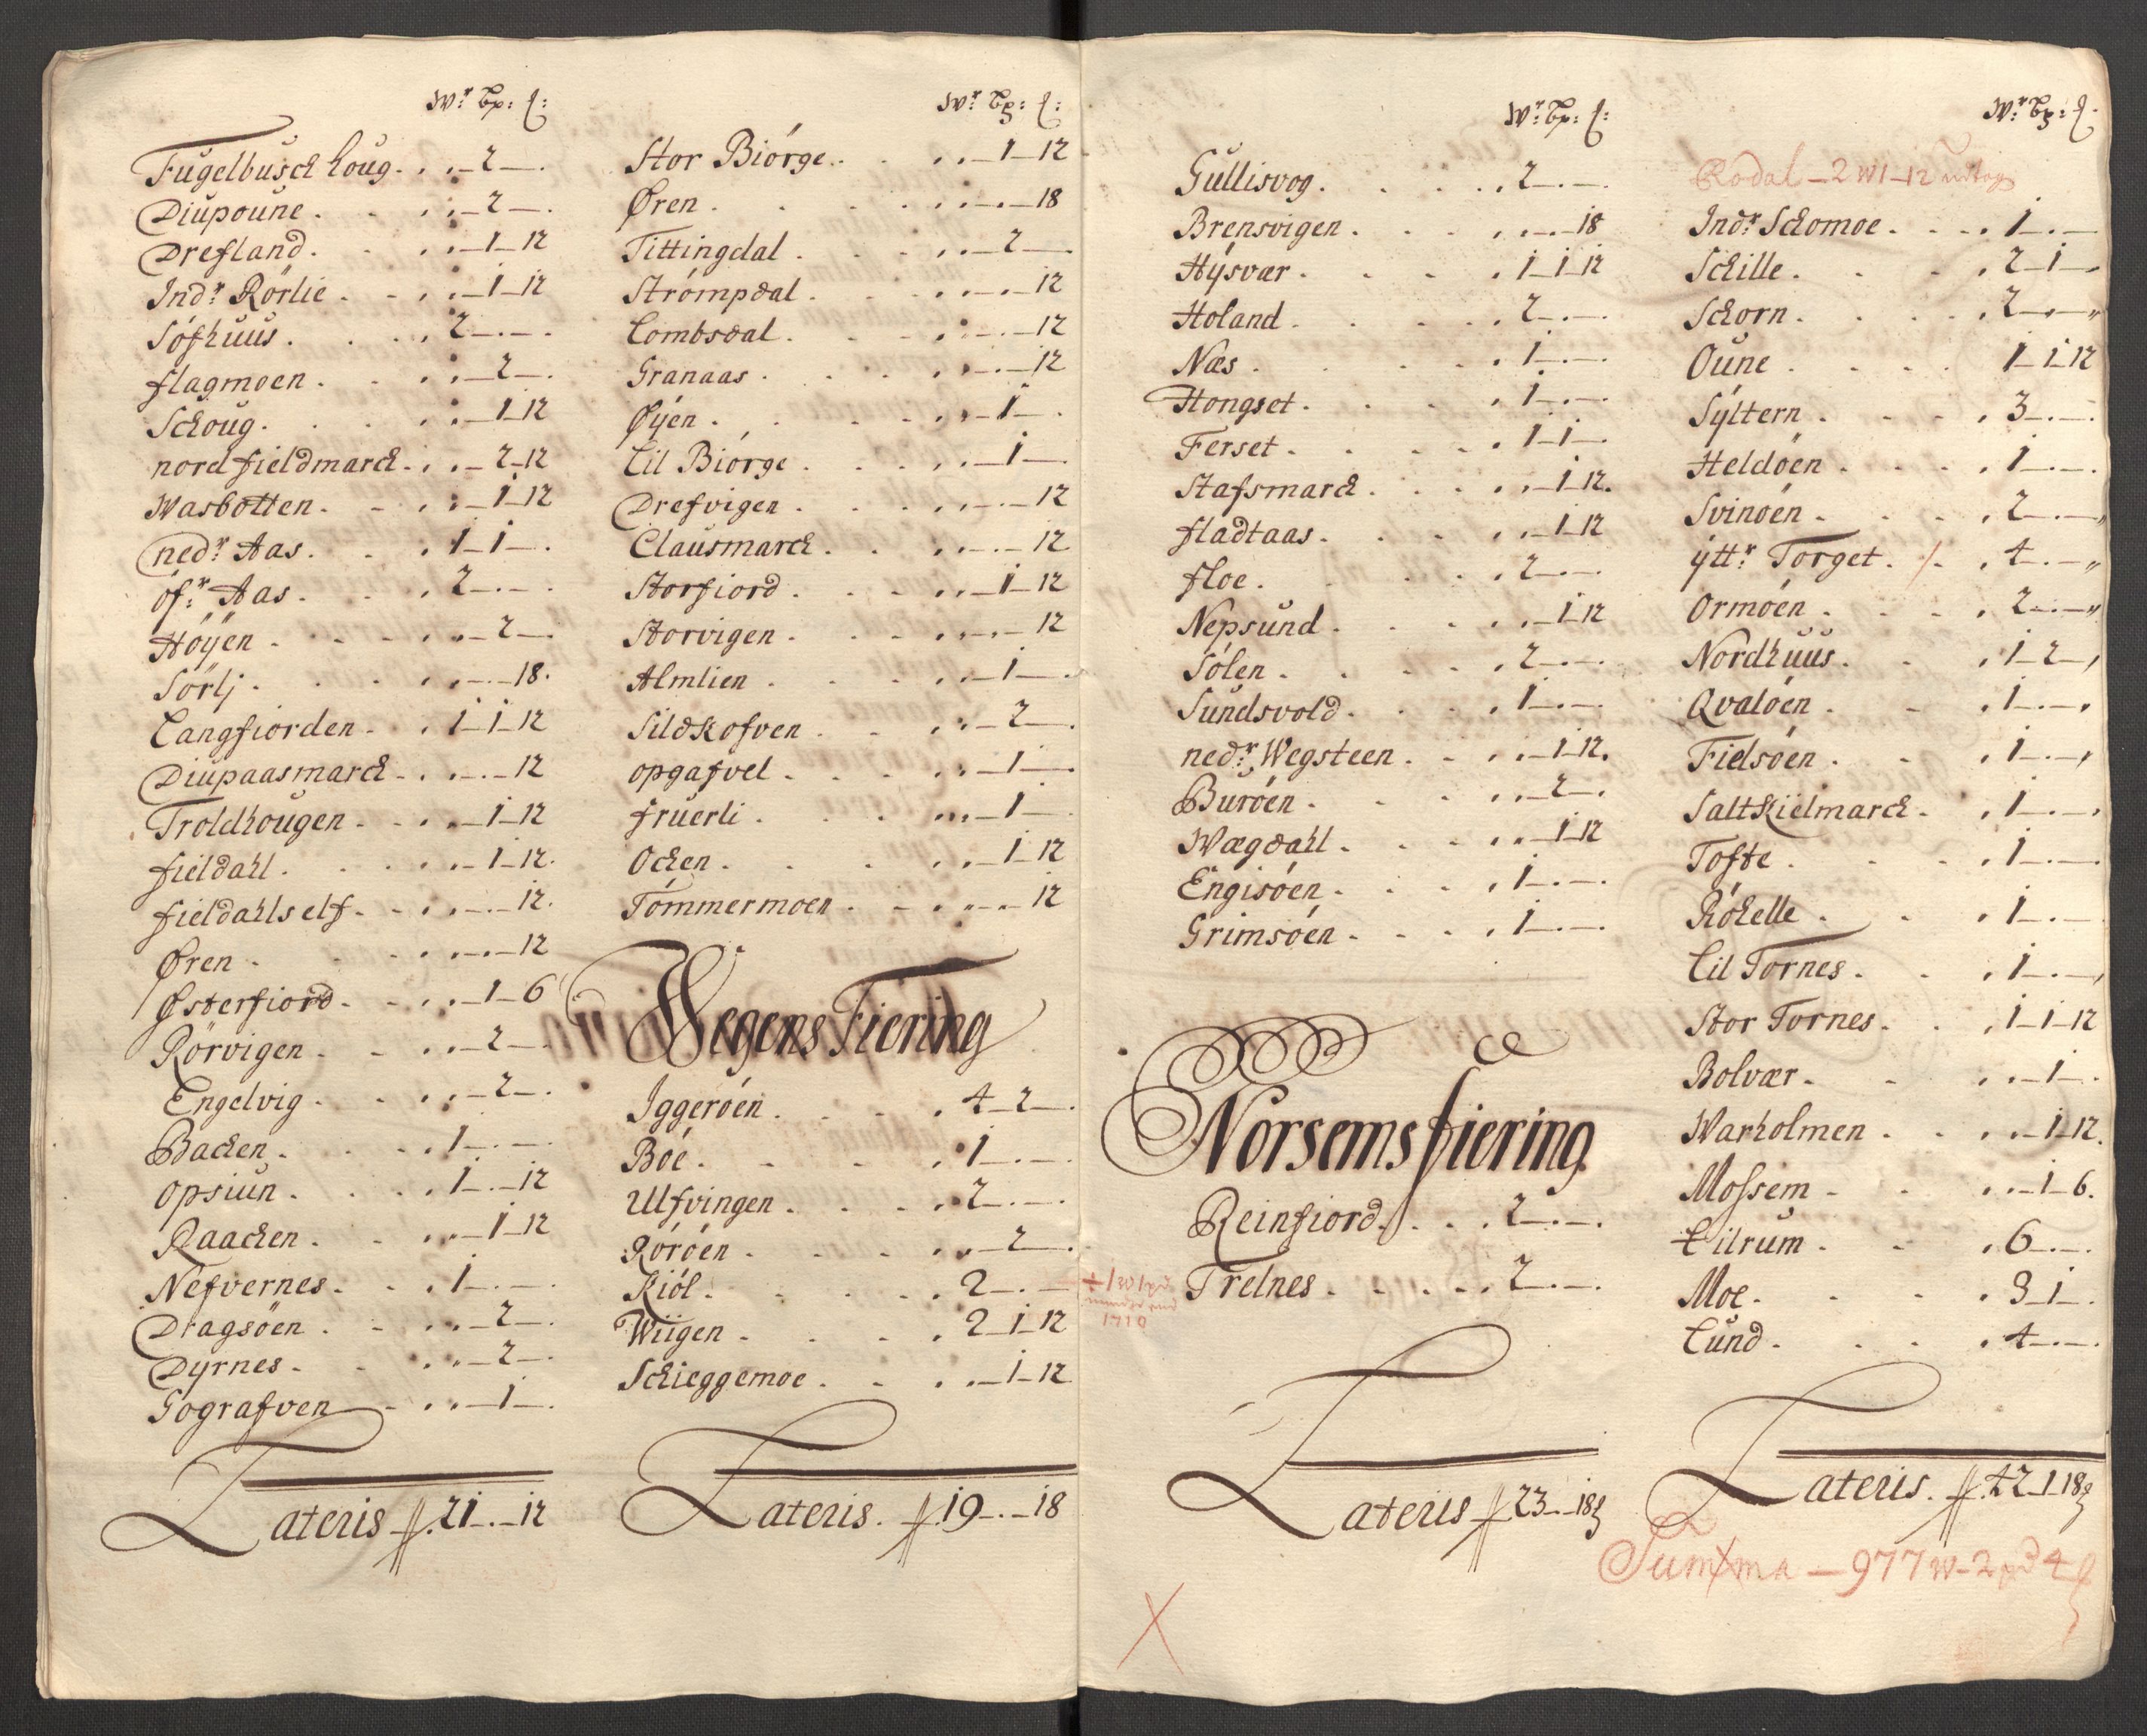 Wr: Bp: l:
Fugelbusck houg . . „ – 2 – .
Diupoune . . „ – 2 – .
Drefland . . „ – 1 – 12
Indr: Rörlie . . „ – 1 – 12
Söfhuus . . . 2 – . –
flagmoen . . „ – 2 – .
Schoug . . „ – 1 – 12
nordfieldmarck . „ – 2 – 12
Wasbotten . . „ – 1 – 12
nedr: Aas . . 1 – 1 – .
öfr: Aas . . 2 – . – .
Höÿen . . „ – 2 – .
Sörlj . . „ – . – 18 .
Langfiorden . . 1 – 1 – 12
Diupaasmarck . „ – . – 12
Troldhougen . . „ – 1 – 12
fieldahl . . „ – 1 – 12 .
fieldahls elf . . „ – . – 12 .
Øren . . „ – . – 12
Østerfiord . . „ – 1 – 6
Rörvigen . . „ – 2 – .
Engelvig . . „ – 2 – .
Backen . . 1 – . –
opsiun . . 1 – . – 12
Raacken . . „ – 1 – 12
Nefvernes . . 1 – . –
Dragsöen . . „ – 2 – .
Dyrnes . . „ – 2 – .
Gografven . . „ – 1 – .
Lateris 21 – . – 12
Wr: Bp: l:
Stor Biörge . . „ – 1 – 12
Øren . . „ – . – 18
Tittingdal . . „ – 2 –
Strömpdal . . „ – . – 12
Lombsdal . . „ – . – 12
Granaas . . „ – . – 12
Øÿen . . „ – 1 – .
Lil Biörge . . „ – 1 –
Drefvigen . . „ – . – 12
Clausmarck . . „ – . – 12
Storfiord . . „ – 1 – 12
Storvigen . . „ – . – 12
Almlien . . „ – 1 –
Sildkofven . . „ – 2 –
opgafvel . . „ – 1 –
fruerli . . „ – 1 –
Ocken . . „ – 1 – 12
Tömmermoen . . „ – . – 12
Wegens Fiering
Iggeröen . . 4 – 2 – .
Böe . . 1 – . –
Ulfvingen . . 2 – . –
Röröen . . „ – 2 – .
Kiöl . . 2 – . –
Wiigen . . 2 – 1 – 12
Schieggemoe . . „ – 1 – 12
Lateris . 19 – . – 18
Wr: Bp: l:
Gullisvog . . 2 – . –
Brensvigen . . „ – . – 18
Hÿsvær . . 1 – 1 – 12
Holand . . 2 – . –
Næs . . 1 – . –
Hongset . . 1 – . –
Ferset . . 1 – 1 – .
Stafsmarck . . „ – 1 – 12 .
fladtaas . . „ – 1 – 12
floe . . 2 – . –
Nepsund . . „ – 1 – 12
Sölen . . 2 – . –
Sundsvold . . 1 – . –
nedr: Wegsteen . . „ – 1 – 12 .
Buröen . . „ – 2 – .
Wægdahl . . „ – 1 – 12
Engisöen . . 1 – . –
Grimsöen . . 1 – . –
Norsems fiering
Reinfiord . . 2 – . –
Trelnes . . 2 – . –
1710
Lateris 23 – . – 18
Wr: Bp: l.
Rodal – 2 W 1 – 12
Indr: Schomoe . . 1 – . –
Schille . . 2 – 1 –
Schorn . . 2 – . – „
Oune . . 1 – 1 – 12
Sÿltern . . 3 – . –
Heldöen . . 1 – . –
Svinöen . . 2 – . – „
ÿttr: Torget . / . 4 – . – „
Ormöen . . 2 – . – „
Nordhuus . . 1 – 2 – ,
Qvalöen . . 1 – . – ,
Fielsöen . . 1 – . – ,
Saltkielmarck . 1 – . – ,
Tofte . . 1 – . –
Röhelle . . 1 – . –
Lil Tornes . . 1 – . – ,
Stor Tornes . . 1 – 1 – 12
Bolvær . . „ – 1 – .
Warholmen . . „ – 1 – 12 .
Mossem . . „ – 1 – 6 .
Tilrum . . 6 – . – .
Moe . . 3 – 1 – .
Lund . . 4 – . – .
Lateris . 42 – 1 – 18
Summa – 977 W – 2 pd 4